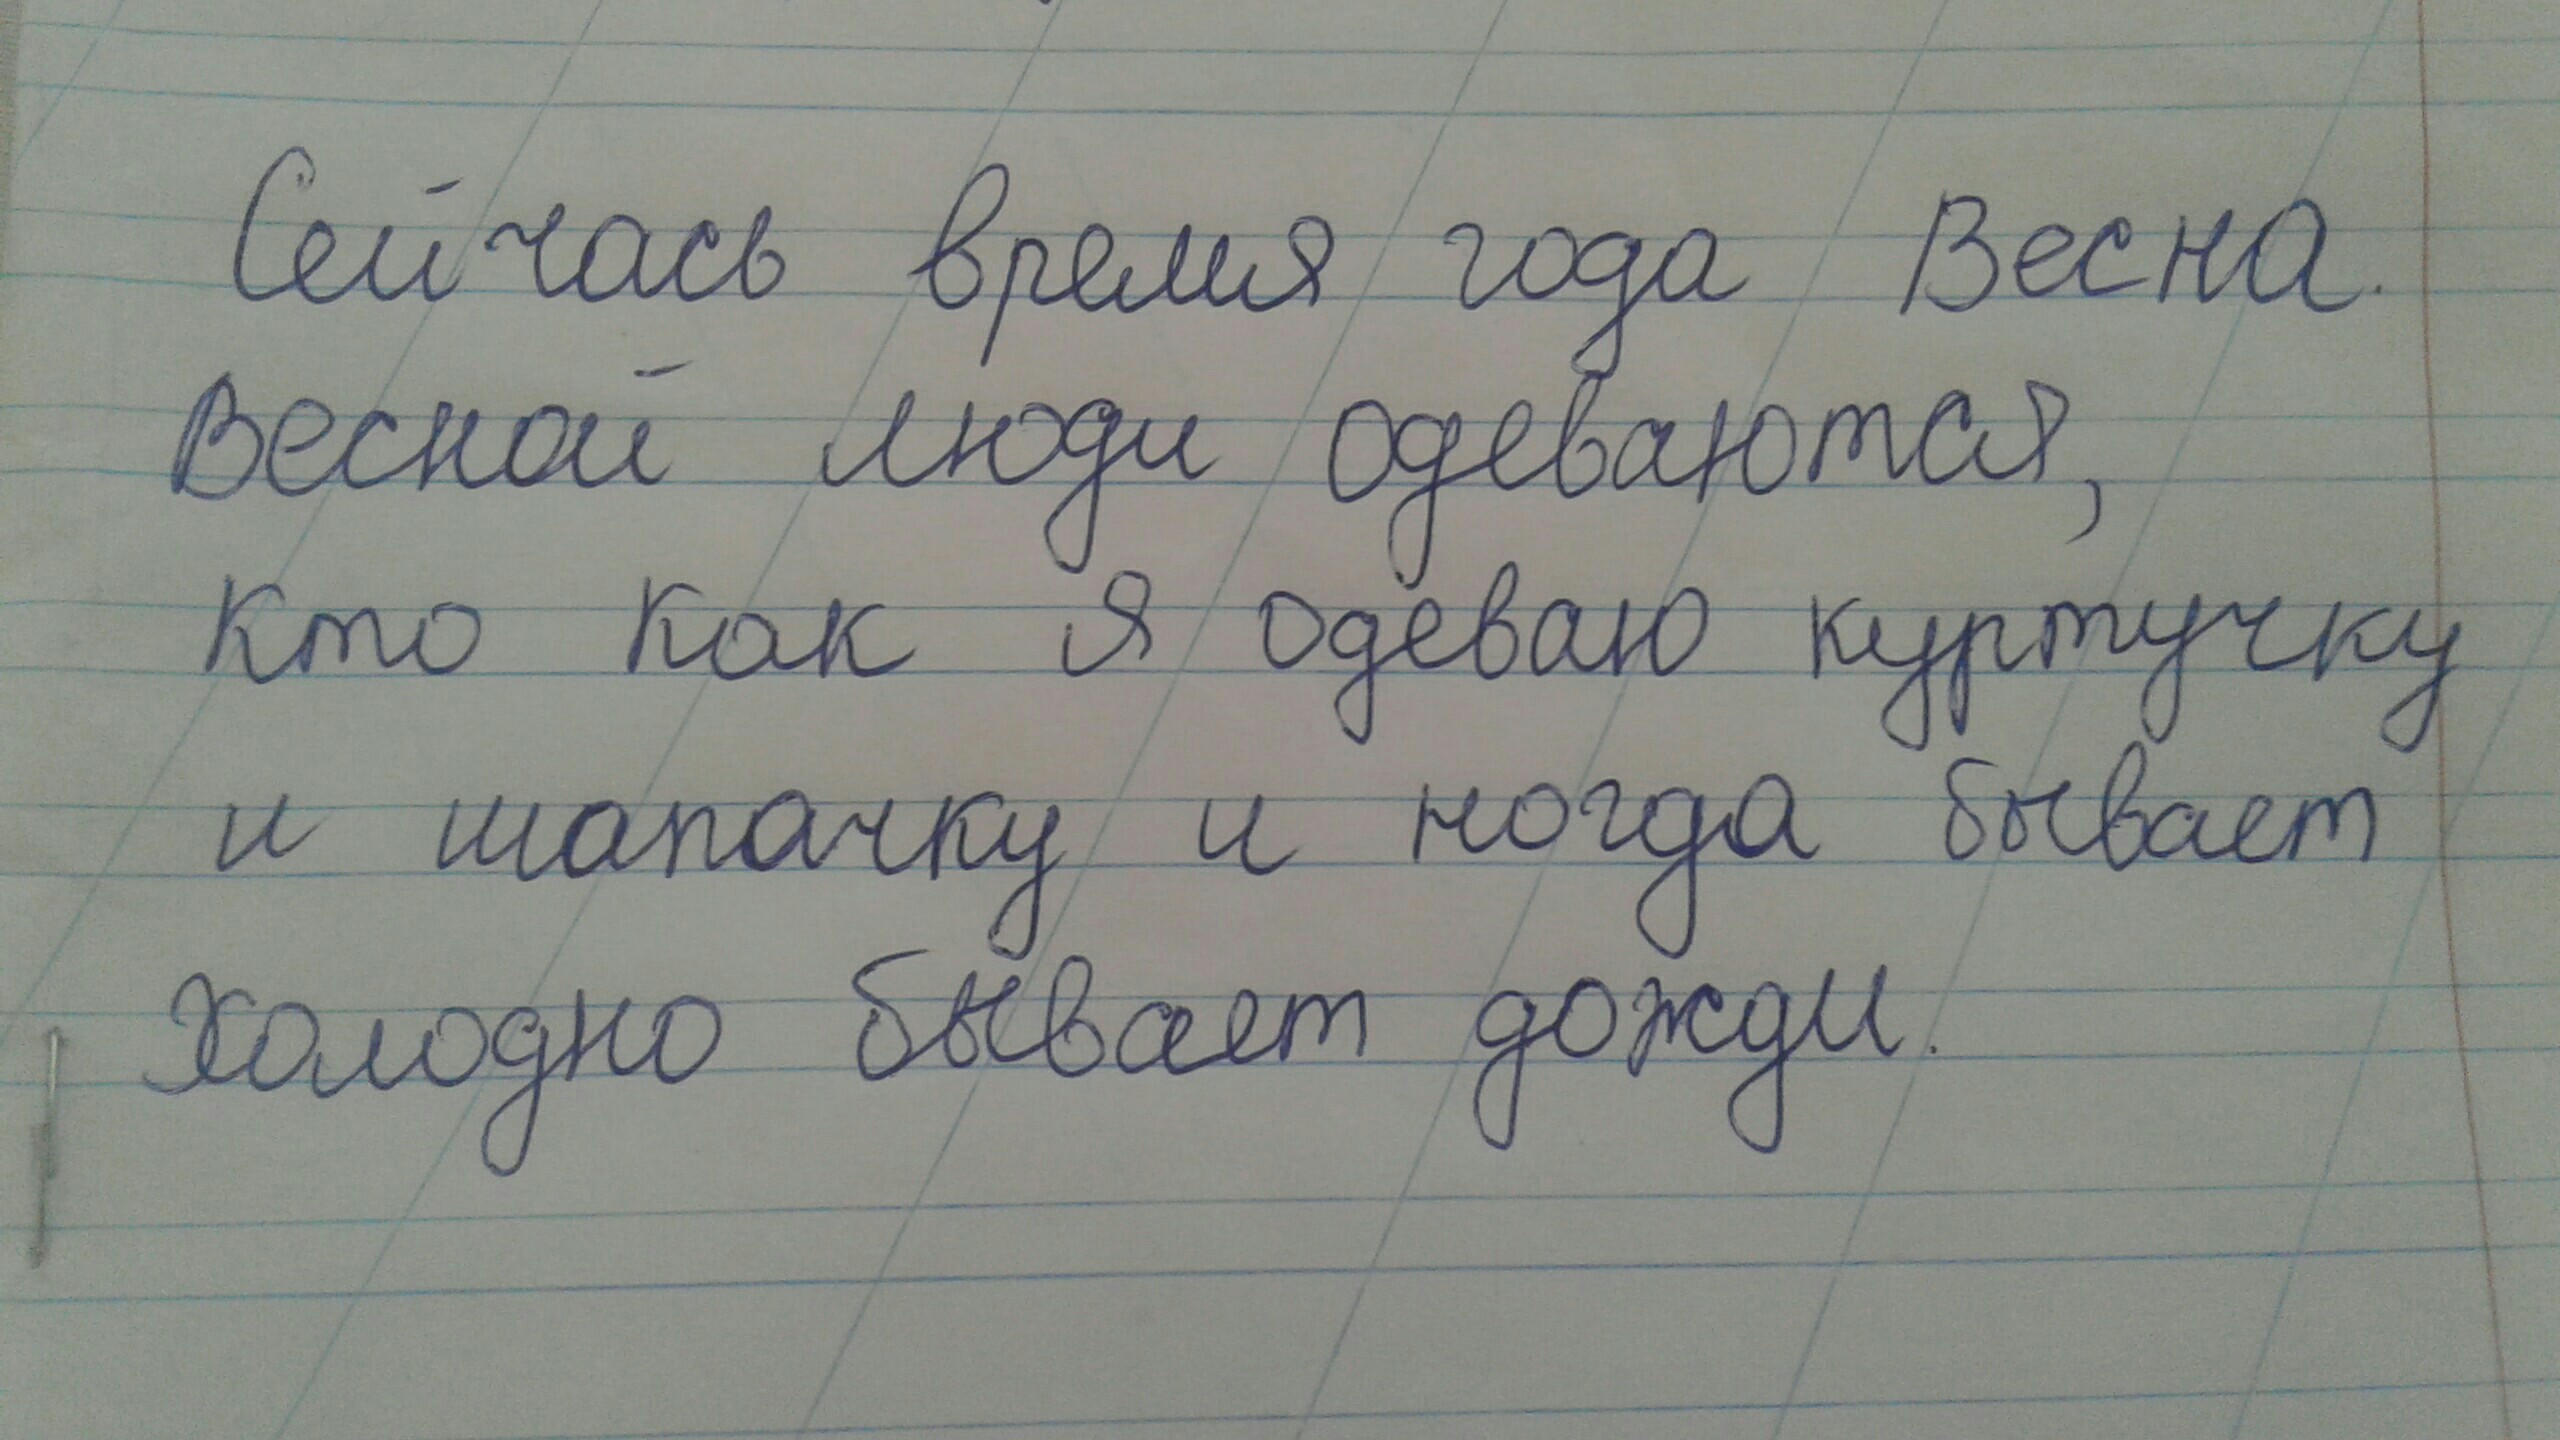 Сейчась время года Весна.
Весной люди одеваются,
кто как я одеваю куртучку
и шапачку и ногда бывает
холодно бывает дожди.